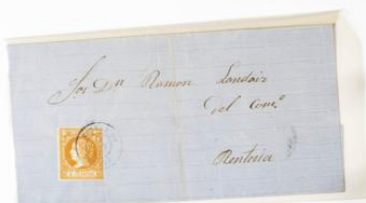 Sor Dn Ramon Landaiz
del Comº
Renteria